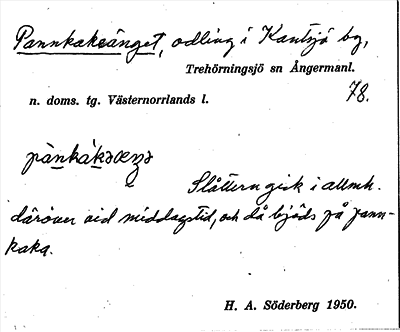 Pannkakeänget, odling i Kantsjö by,
Trehörningsjö sn Ångermanl.
n. doms. tg. Västernorrlands l. 78.
Slåttern gick i allmh.
däröver vid middagstid, och då bjöds på pann-
kaka.
H. A. Söderberg 1950.